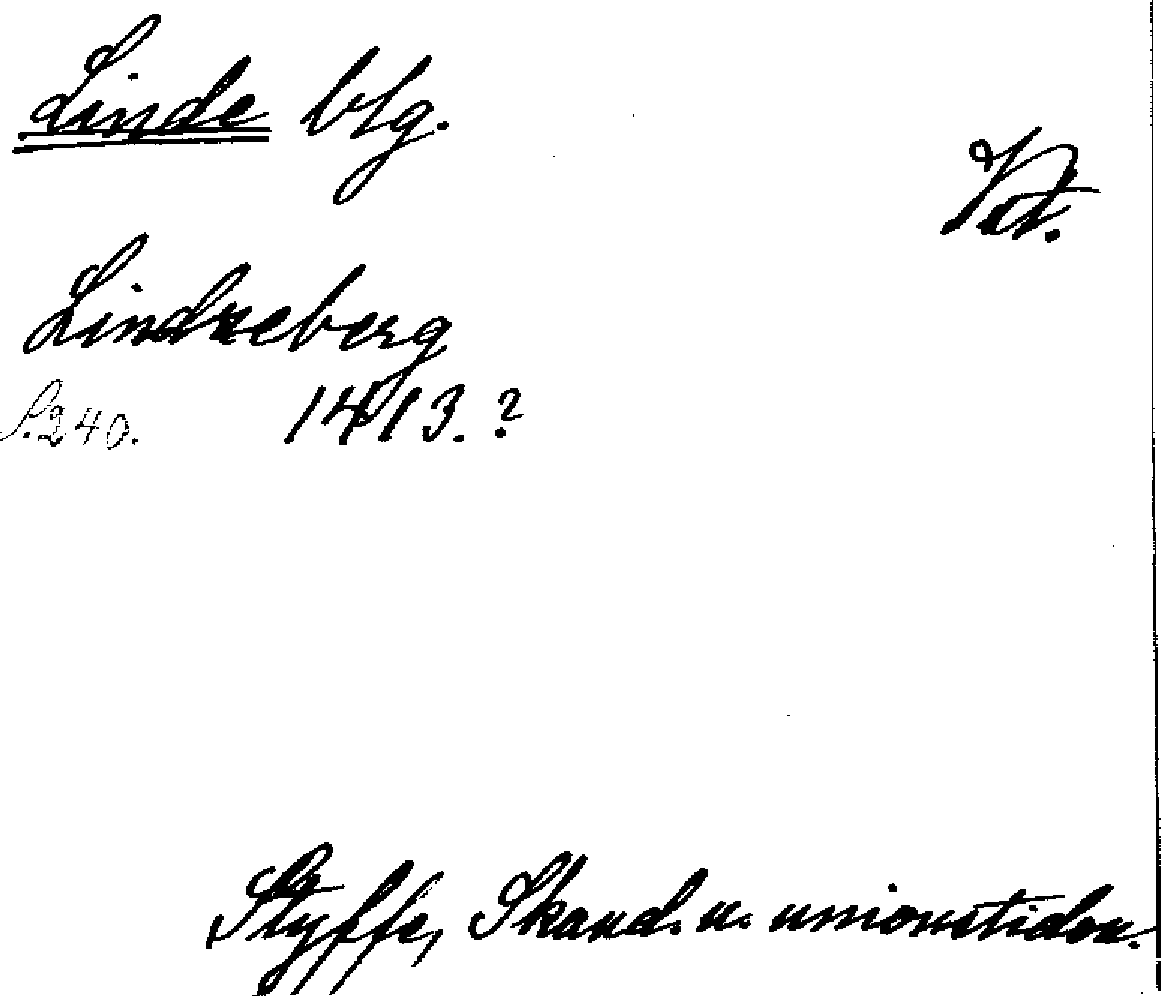 Linde blg.
Vst.
Lindzeberg
S. 240. 1413. ?
Styffe, Skand. u. unionstiden.